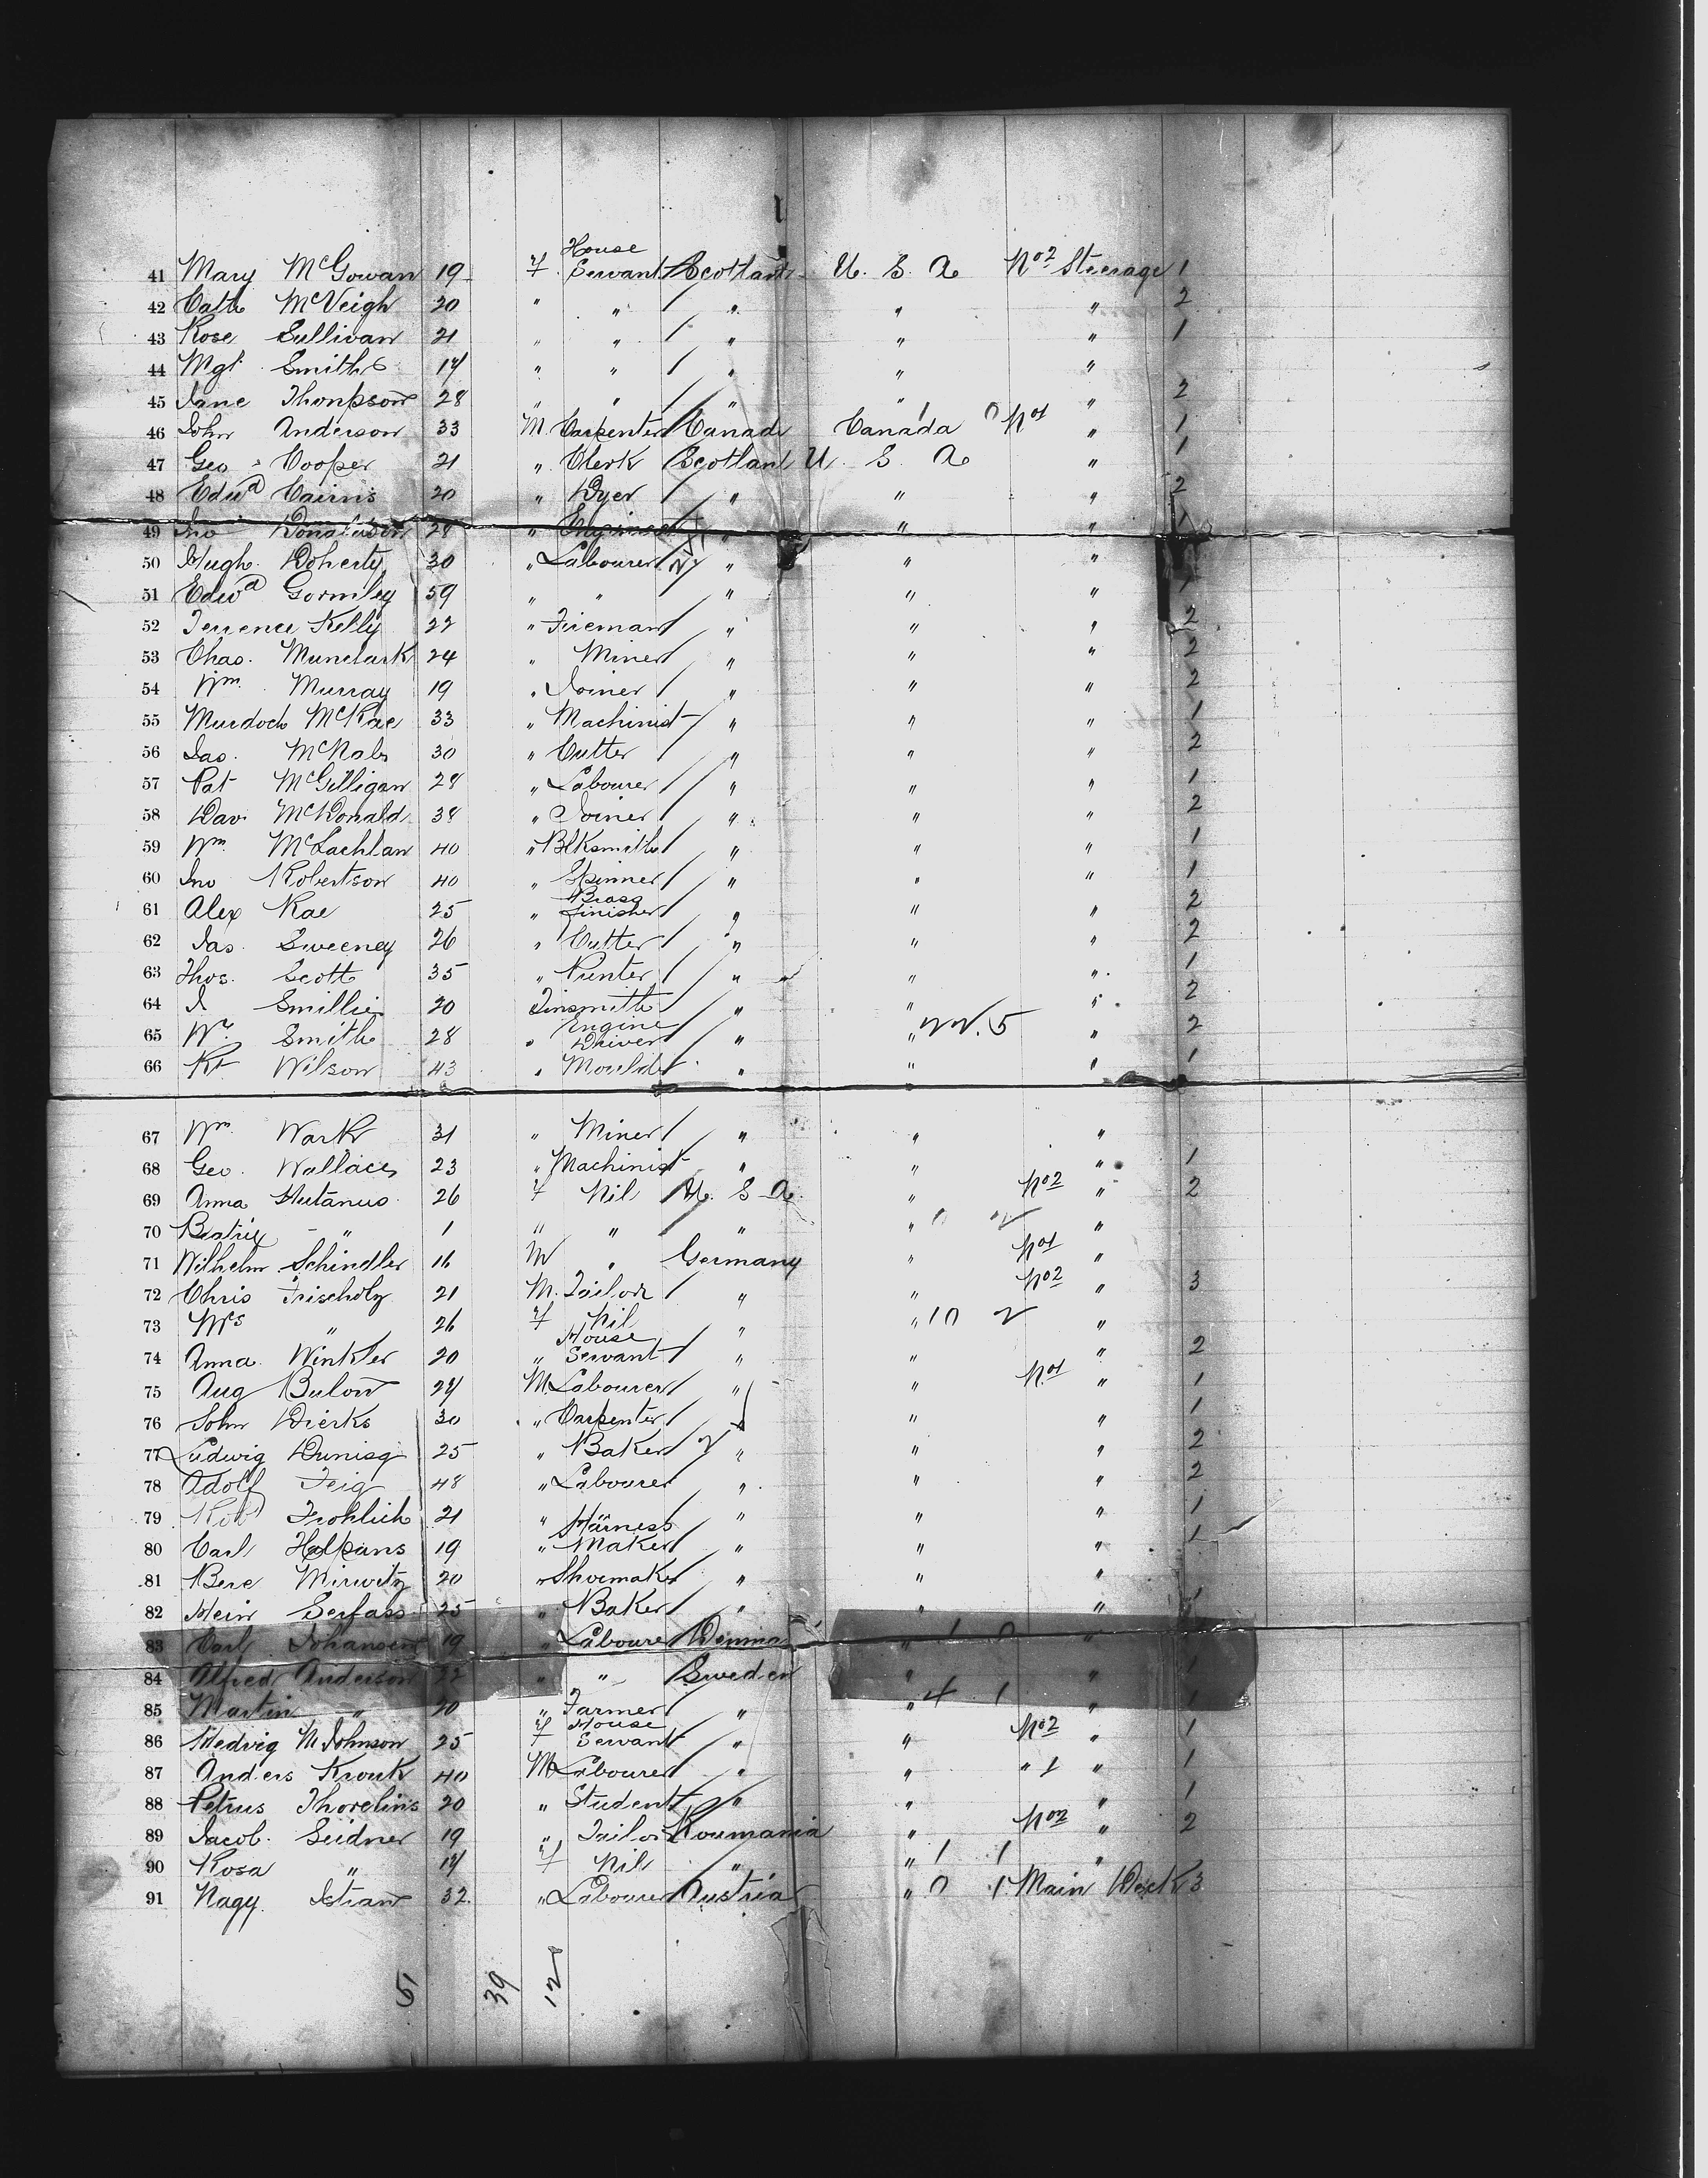 41 Mary McGowan 19 f House Servant Scotland U. S. A No 2 Steerage 1
42 Cath McVeigh 20 " " " " " 2
43 Rose Sullivan 21 " " " " " 1
44 Mgt Smith " " " " "
45 Jane Thompson 28 " " " " " 2
46 John Anderson 33 M. Carpenter Canada Canada No 1 " 1
47 Geo Cooper 21 " Clerk Scotland U. S. A " 1
48 Edwd Cairns 20 " Dyer " " " 2
49 Jno Donaldson 28 " Engineer " " " 1
50 Hugh Doherty 30 " Labourer " " "
51 Edwd Gormley 59 " " " " " 1
52 Terrence Kelly 22 " Fireman " " " 2
53 Chas. Munclark 24 " Miner " " " 2
54 Wm. Murray 19 " Joiner " " " 2
55 Murdoch McRae 33 " Machinist " " " 1
56 Jas. McNab 30 " Cutter " " " 2
57 Pat McGilligan 28 " Labourer " " " 1
58 Dav McDonald 38 " Joiner " " " 2
59 Wm. McLachlan 40 " Blksmith " " " 1
60 Jno Robertson 40 " Spinner " " " 1
61 Alex Rae 25 " Brass finisher " " " 2
62 Jas. Sweeney 26 " Cutter " " " 2
63 Thos. Scott 35 " Printer " " " 1
64 J Smillie 20 Tinsmith " " " 2
65 Wm. Smith 28 " Engine Driver " " " 2
66 Rt Wilson 43 " Moulder " " " 1
67 Wm. Wark 31 " Miner " " "
68 Geo. Wallace 23 " Machinist " " " 1
69 Anna 26 f Nil U. S. A. " No 2 " 2
70 Beatrix " 1 " " " " "
71 Wilhelm Schindler 16 M " Germany " No 1 "
72 Chris Frischolz 21 M. Tailor " " No 2 " 3
73 Mrs " 26 f Nil " " "
74 Anna Winkler 20 " House Servant " " " 2
75 Aug Bulow 24 M. Labourer " " No 1 " 1
76 John Dierks 30 " Carpenter " " " 1
77 Ludwig 25 " Baker " " " 2
78 Adolf Feig 48 " Labourer " " " 2
79 Robt Frohlich 21 " " " " 1
80 Carl 19 " Harness Maker " " " 1
81 Mirwitz 20 " Shoemaker " " "
82 Hein Serfass 25 " Baker " " " 1
83 Carl Johansen 19 " Labourer Denmark " "
84 Alfred Anderson 22 " " Sweden " " 1
85 Martin " 20 " Farmer " " 4 1 " 1
86 Hedvig M Johnson 25 f House Servant " " No 2 " 1
87 Anders Krouk 40 M Labourer " " " 1 " 1
88 Petrus Thorelius 20 " Student " " " 1
89 Jacob. Seidner 19 " Tailor Roumania " No 2 " 2
90 Rosa " f Nil " " 1 1 "
91 Nagy Istvan 32 " Labourer Austria " 0 1 Main Deck 3
51 39 12